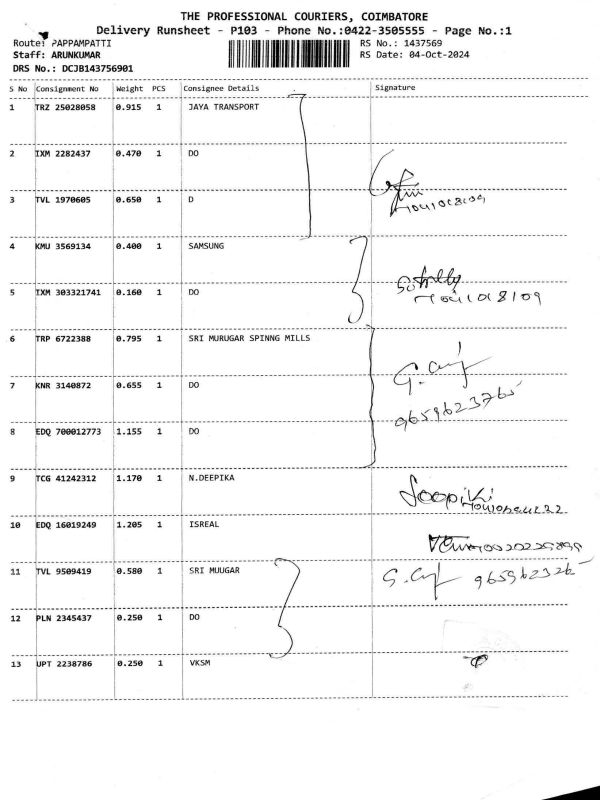 THE PROFESSIONAL COURIERS, COIMBATORE
Delivery Runsheet - P103 - Phone No.:0422-3505555 - Page No.:1
Route: PAPPAMPATTI RS No.: 1437569
Staff: ARUNKUMAR RS Date: 04-Oct-2024
DRS No.: DCJB143756901
S No Consignment No Weight PCS Consignee Details Signature
1 TRZ 25028058 0.915 1 JAYA TRANSPORT
2 IXM 2282437 0.470 1 DO
3 TVL 1970605 0.650 1 D
4 KMU 3569134 0.400 1 SAMSUNG
5 IXM 303321741 0.160 1 DO
6 TRP 6722388 0.795 1 SRI MURUGAR SPINNG MILLS
7 KNR 3140872 0.655 1 DO
9659623765
8 EDQ 700012773 1.155 1 DO
9 TCG 41242312 1.170 1 N.DEEPIKA
10 EDQ 16019249 1.205 1 ISREAL
11 TVL 9509419 0.580 1 SRI MUUGAR
12 PLN 2345437 0.250 1 DO
13 UPT 2238786 0.250 1 VKSM